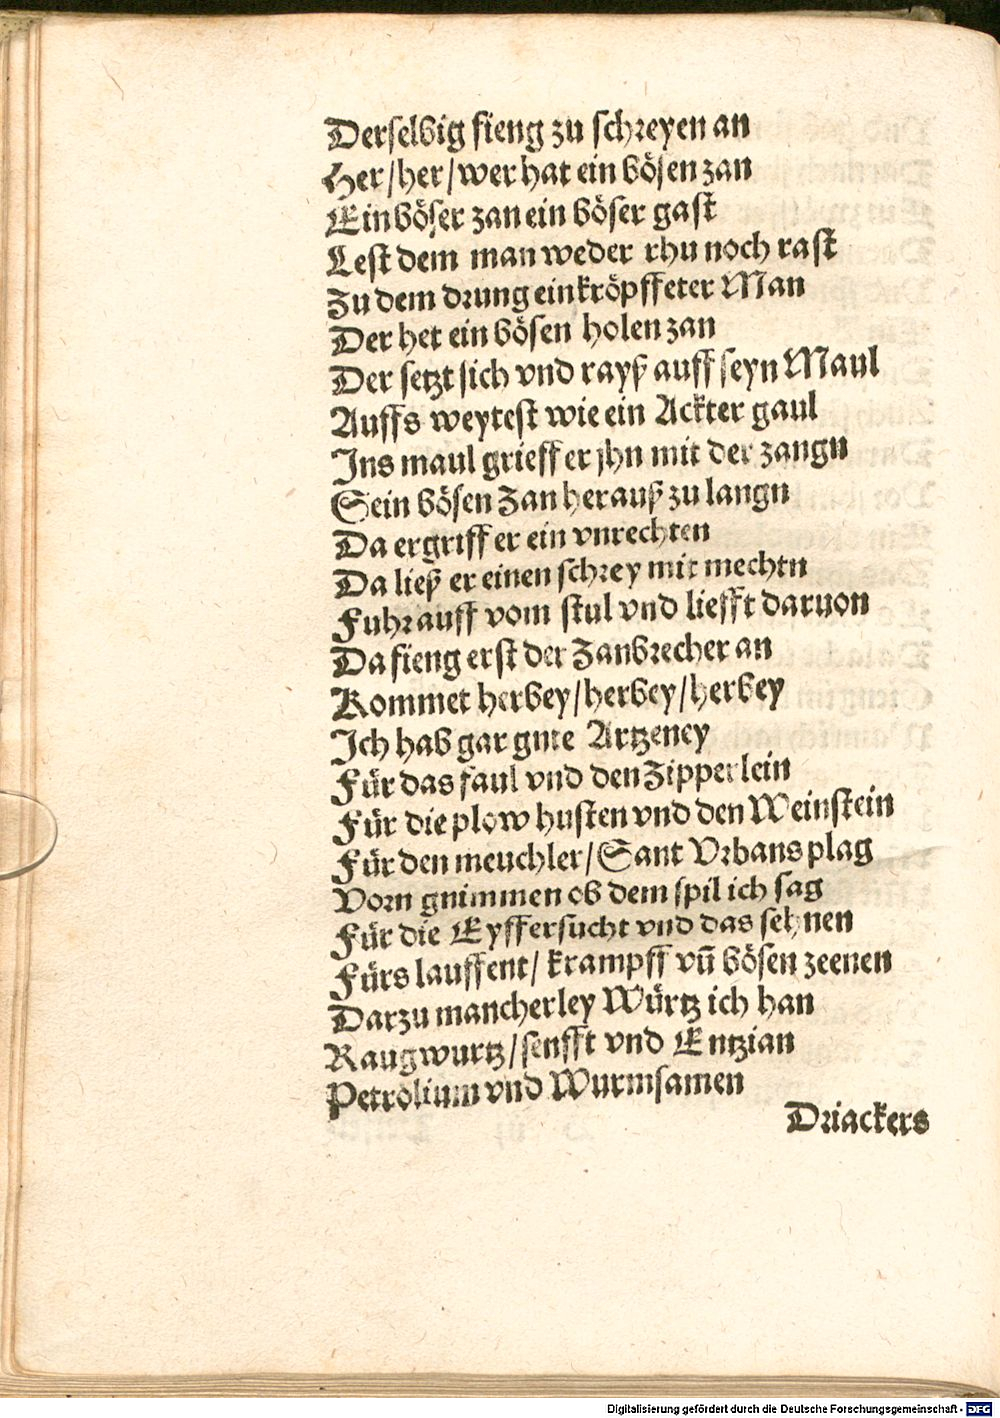 Derselbig fieng zu schreyen an
Her/her/wer hat ein bösen zan
Ein böser zan ein böser gast
Lest dem man weder rhu noch rast
Zu dem drung ein kröpffeter Man
Der het ein bösen holen zan
Der setzt sich vnd rayß auff seyn Maul
Auffs weytest wie ein Ackter gaul
Ins maul grieff er jhn mit der zangn
Sein bösen Zan herauß zu langn
Da ergriff er ein vnrechten
Da ließ er einen schrey mit mechtn
Fuhr auff vom stul vnd liefft daruon
Da fieng erst der Zanbrecher an
Kommet herbey/herbey/herbey
Ich hab gar gute Artzeney
Für das faul vnd den Zipperlein
Für die plow husten vnd den Weinstein
Für den meuchler/Sant Vrbans plag
Vorn gnimmen ob dem spil ich sag
Für die Eyffersucht vnd das sehnen
Fürs lauffent/krampff vn̄ bösen zeenen
Darzu mancherley Würtz ich han
Raugwurtz/senfft vnd Entzian
Petrolium vnd Wurmsamen
Driackers
Digitalisierung gefördert durch die Deutsche Forschungsgemeinschaft - DFG